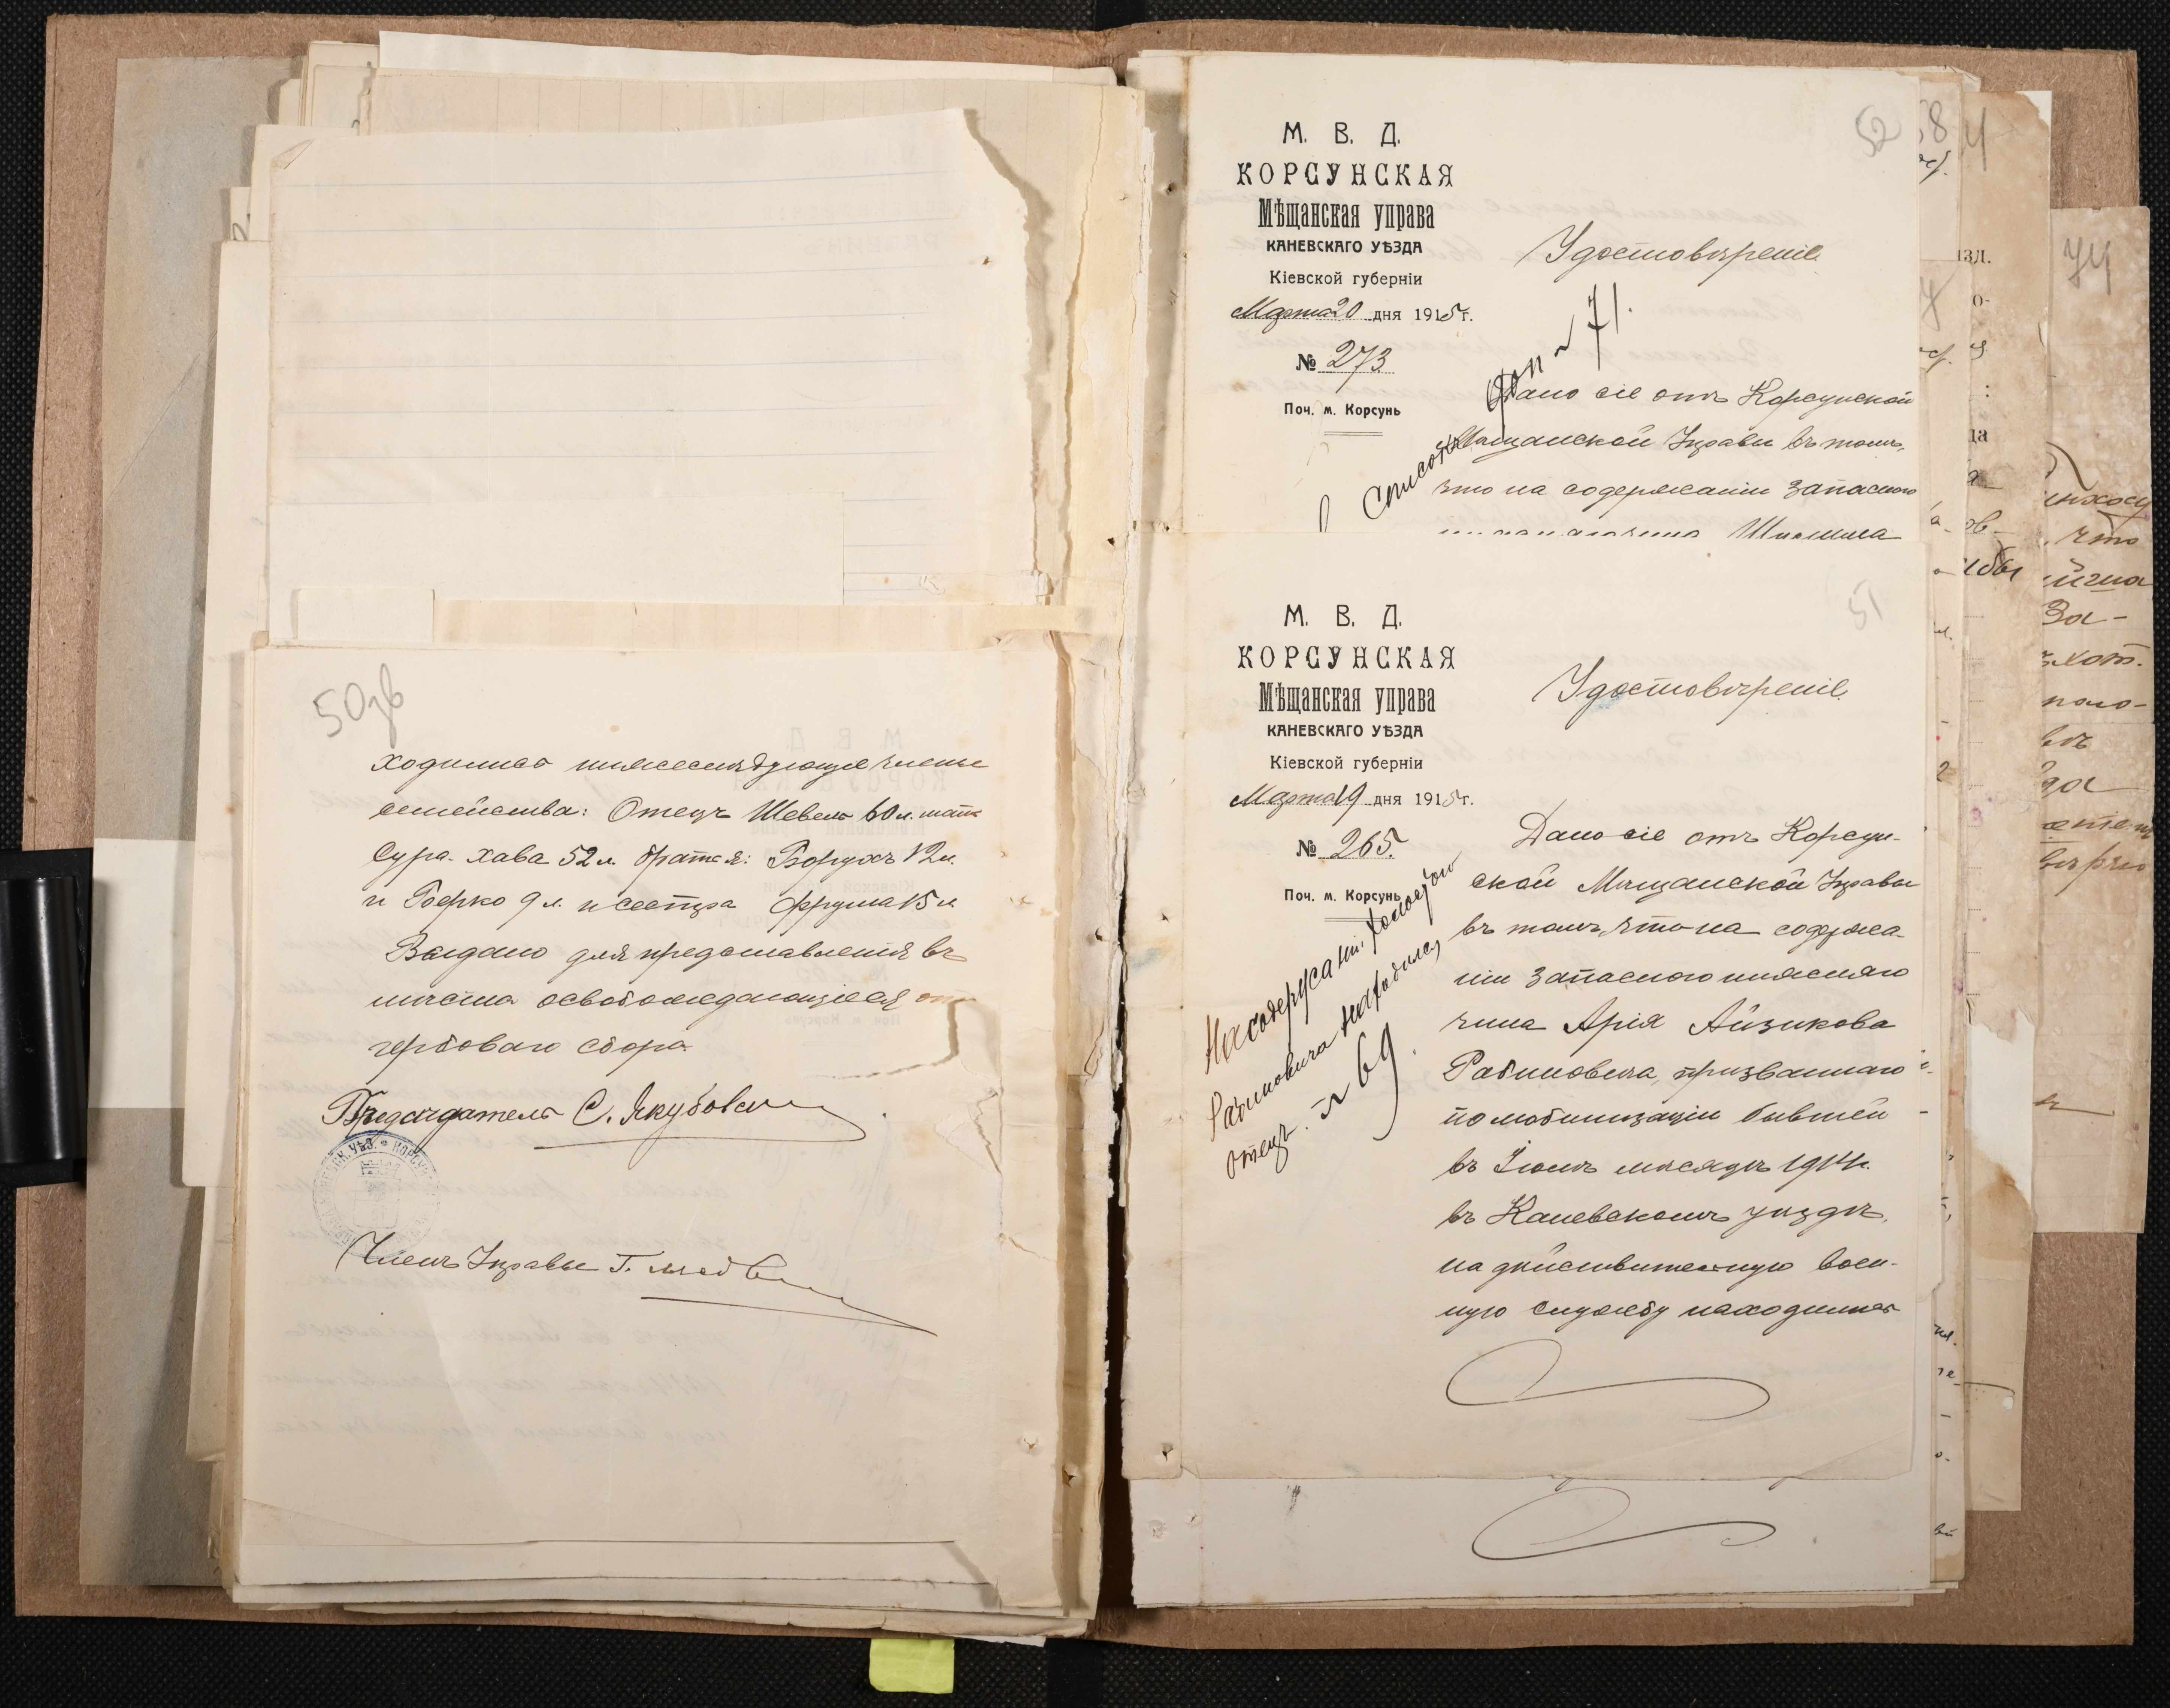 50зв
ходились нижеслѣдующіе члены
семейства: Отецъ Шевель 60 л. мать
Сура-Хава 52 л. братья: Борухъ 12 л.
и Берко 9 л. и сестра Фрума 15 л.
Выдано для представленія въ
мѣста освобождающіеся от
гербоваго сбора
Предсѣдатель С. Якубовск
Членъ Управы Г.
52
М. В. Д.
КОРСУНСКАЯ
Мѣщанская управа
КАНЕВСКАГО УѢЗДА
Кіевской губерніи
Марта 20 дня 1915 г.
№ 273
Поч. м. Корсунь
Удостовѣреніе
71.
Списокъ
Дано сіе отъ Корсунской
Мѣщанской Управы въ томъ,
что на содержаніи запасного
Шмилика
51
М. В. Д.
КОРСУНСКАЯ
Мѣщанская управа
КАНЕВСКАГО УѢЗДА
Кіевской губерніи
Марта 19 дня 1915 г.
№ 265.
Поч. м. Корсунь
Удостовѣреніе
На содержаніи холостой
Рабиновича находился
отецъ. № 69
Дано сіе отъ Корсун-
ской Мѣщанской Управы
въ томъ, что на содержа-
ніи запасного нижняго
чина Арія Айзикова
Рабиновича, призваннаго
по мобилизаціи бывшей
въ Іюлѣ мѣсяцѣ 1914 г.
въ Каневскомъ уѣздѣ,
на дѣйствительную воен-
ную службу находились